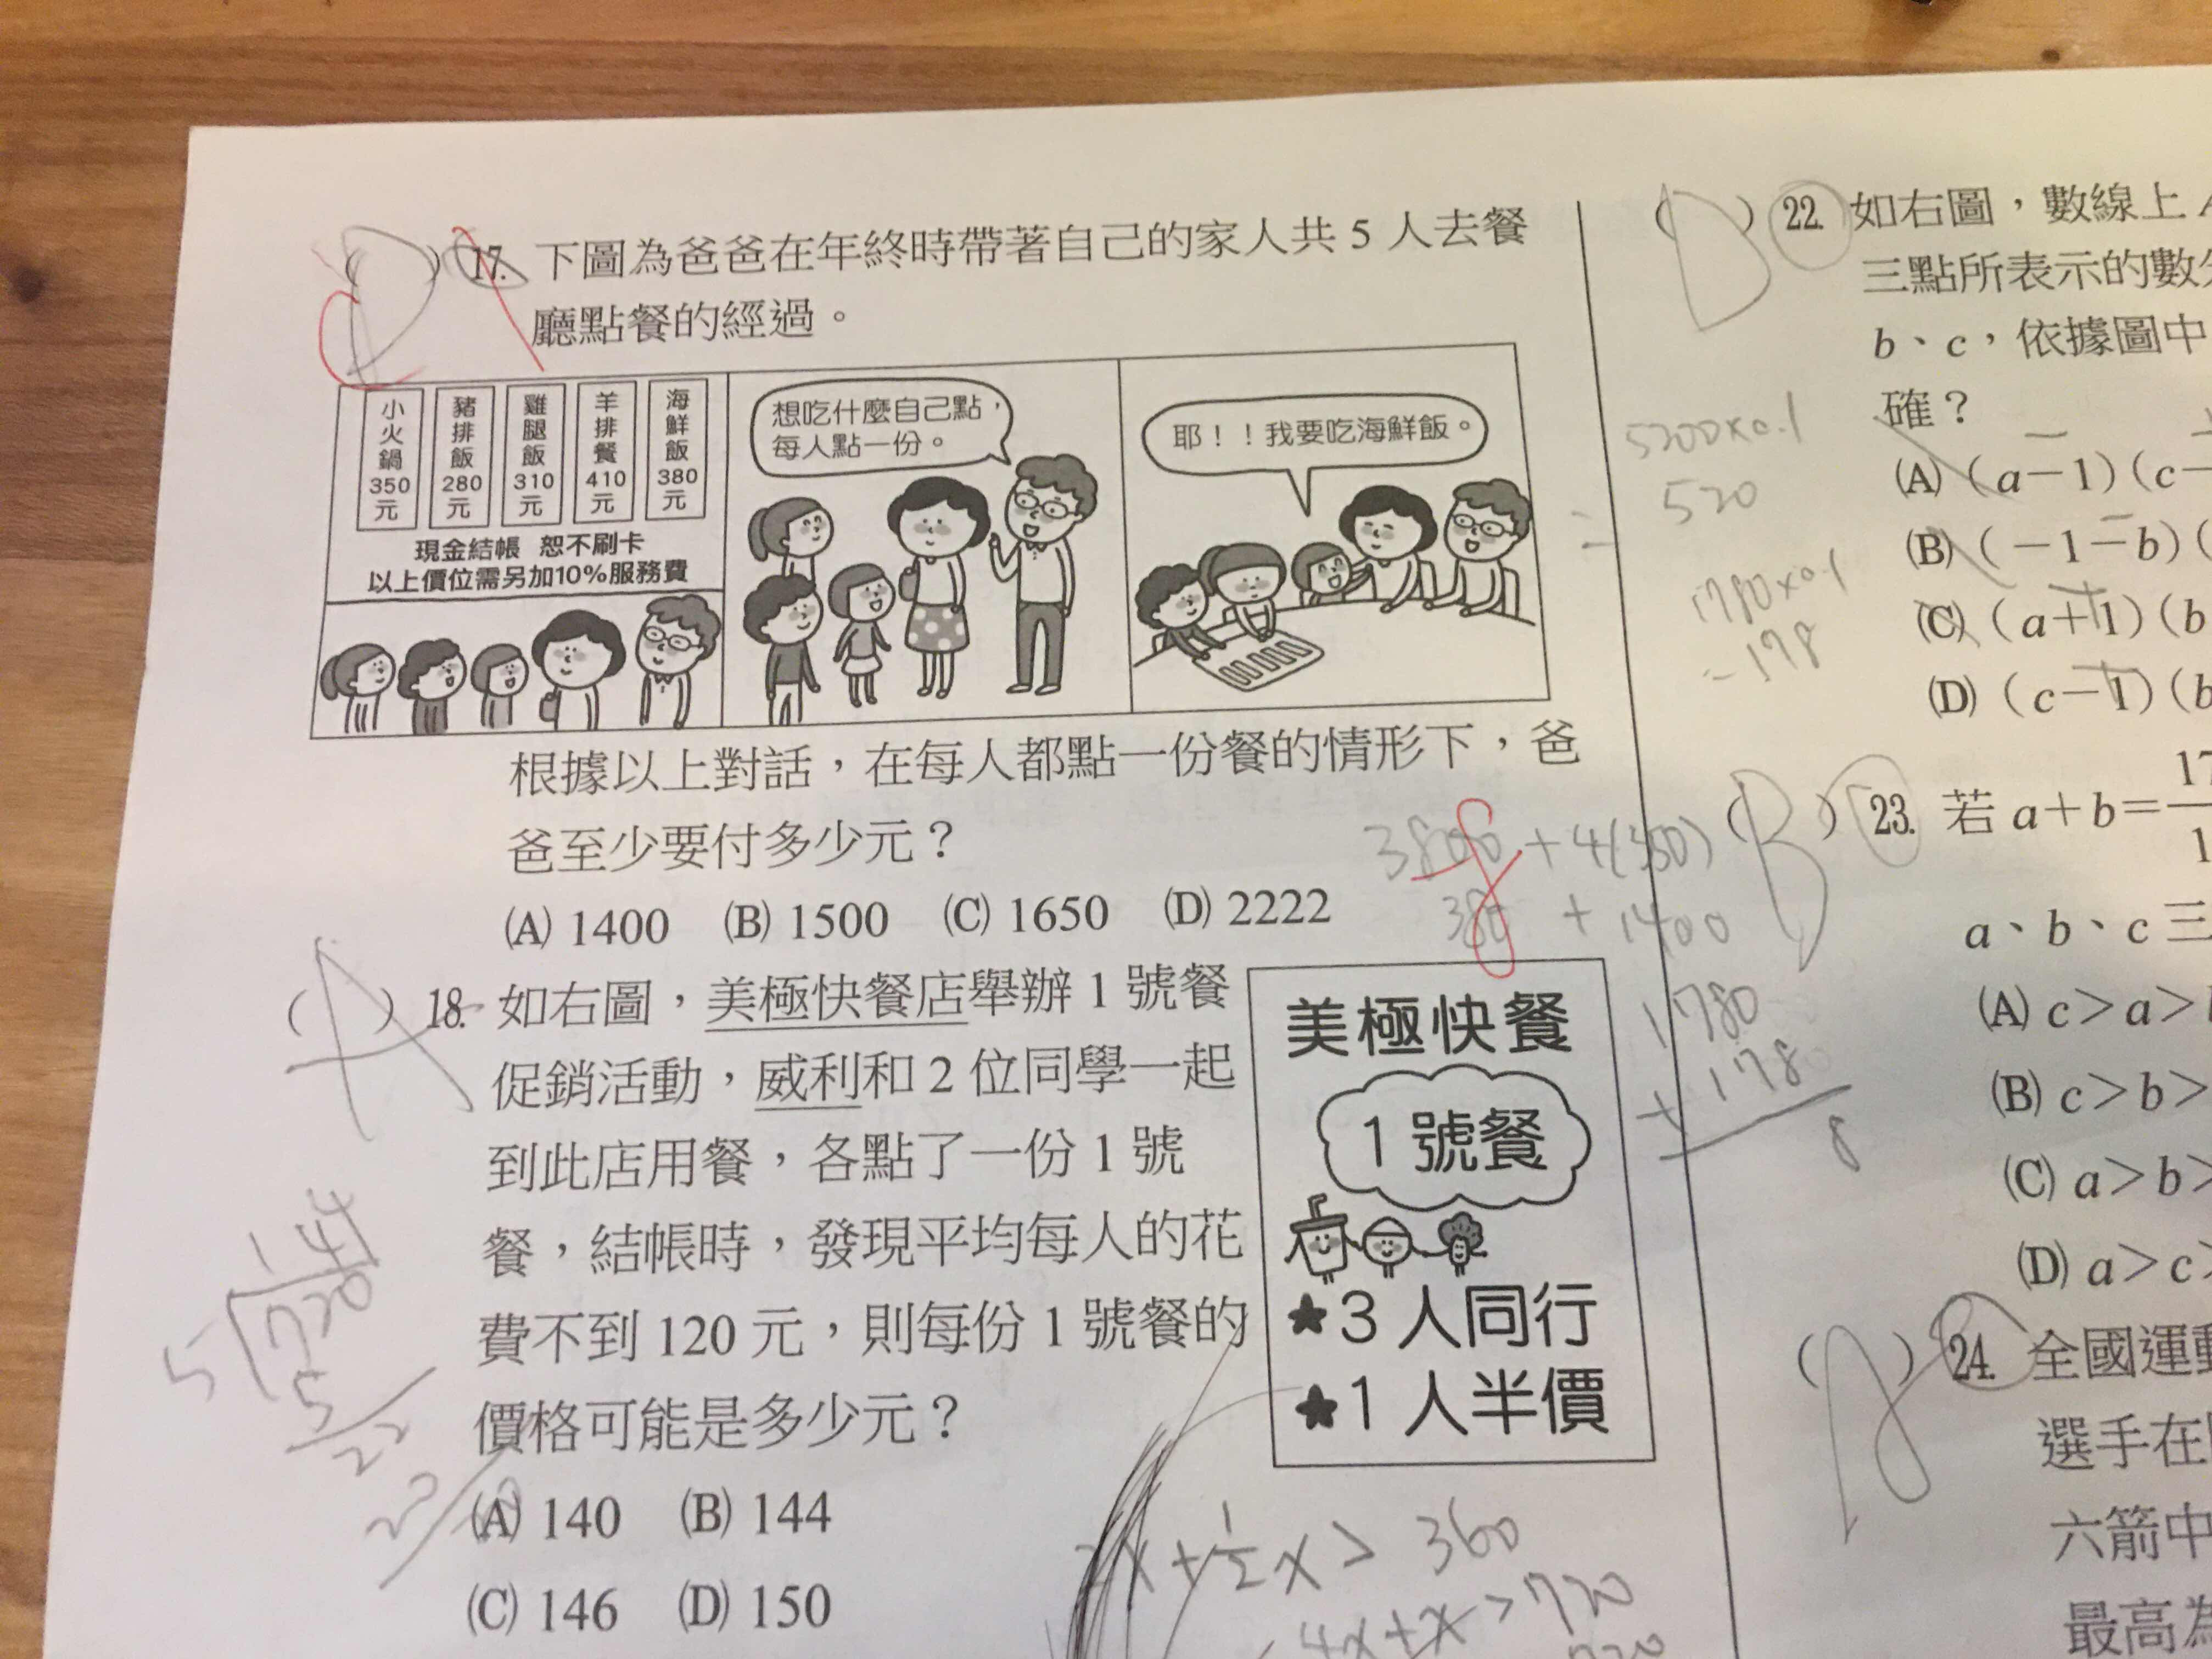 (D) 17. 下圖為爸爸在年終時帶著自己的家人共 5 人去餐
廳點餐的經過。
C
小火鍋350元
豬排飯280元
雞腿飯310元
羊排餐410元
海鮮飯380元
現金結帳 恕不刷卡
以上價位需另加10%服務費
想吃什麼自己點，
每人點一份。
耶！！我要吃海鮮飯。
根據以上對話，在每人都點一份餐的情形下，爸
爸至少要付多少元？
(A) 1400 (B) 1500 (C) 1650 (D) 2222
(A) 18. 如右圖，美極快餐店舉辦 1 號餐
促銷活動，威利和 2 位同學一起
到此店用餐，各點了一份 1 號
餐，結帳時，發現平均每人的花
費不到 120 元，則每份 1 號餐的
價格可能是多少元？
(A) 140 (B) 144
(C) 146 (D) 150
美極快餐
1 號餐
★3 人同行
★1 人半價
144
5 720
5
22
2x+½x> 360
4x+x>720
720
5200×0.1
=520
1780×0.1
=178
+4(350)
380 + 1400
1780
+ 178
8
(D) 22. 如右圖，數線上
三點所表示的數
b、c，依據圖中
確？
(A) (a−1)(c−
(B) (−1−b)(
(C) (a+1)(b
(D) (c−1)(b
(B) 23. 若 a+b=17
1
a、b、c 三
(A) c>a>
(B) c>b>
(C) a>b>
(D) a>c>
( ) 24. 全國運動
選手在
六箭中
最高為